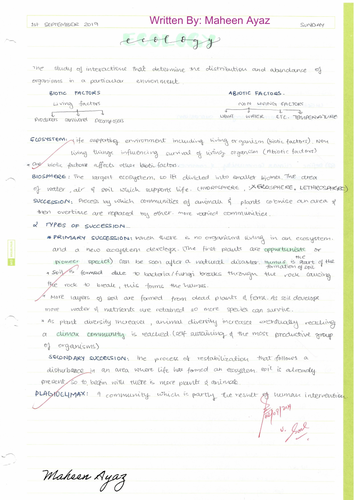 1st SEPTEMBER 2019 Written By: Maheen Ayaz SUNDAY
ecology
The study of interactions that determine the distribution and abundance of
organisms in a particular environment.
BIOTIC FACTORS ABIOTIC FACTORS
Living factors Non living factors
LIGHT WATER ETC. TEMPERATURE
ECOSYSTEM: life supporting environment including living organism (biotic factors) non
living things influencing survival of living organism (Abiotic factors)
• One biotic factor affects other biotic factors.
BIOSPHERE: The largest ecosystem, is divided into smaller biomes. The area
of water, air & soil which supports life.
SUCCESSION: Process by which communities of animals & plants colonise an area &
then overtime are replaced by other more varied communities.
2 TYPES OF SUCCESSION...
• PRIMARY SUCCESSION: When there is no organisms living in an ecosystem
and a new ecosystem develops. (The first plants are opportunistic or
pioneer species) can be seen after a natural disaster. Humus is the start of the
formation of soil
• Soil is formed due to bacteria/fungi breaks through the rock causing
the rock to break, this forms the humus.
• More layers of soil are formed from dead plants & fona. As soil develops
more water & nutrients are retained so more species can survive.
• As plant diversity increases, animal diversity increases eventually reaching
a climax community is reached (self sustaining & the most productive group
of organisms)
SECONDARY SUCCESSION: the process of restabilization that follows a
disturbance in an area where life has formed an ecosystem soil is already
present so to begin with there is more plants & animals.
PLAGIOCLIMAX: A community which is partly the result of human intervention
Maheen Ayaz